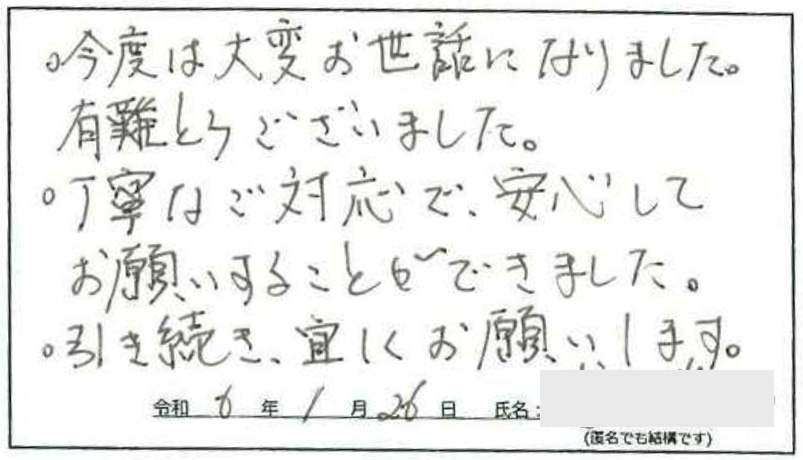 。今度は大変お世話になりました。
有難とうございました。
。丁寧なご対応で、安心して
お願いすることができました。
。引き続き、宜しくお願いします。
令和 6 年 1 月 26 日 氏名:
(匿名でも結構です)